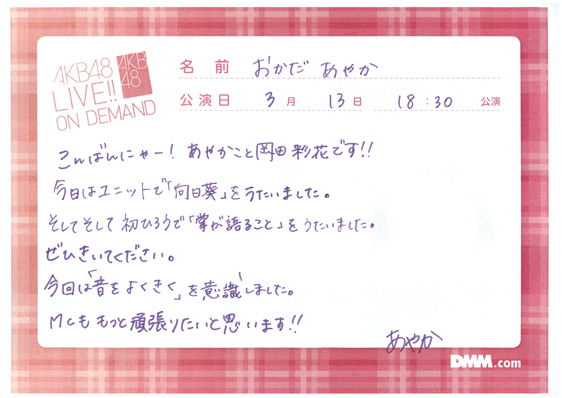 AKB48
LIVE!!
ON DEMAND
AKB
48
名 前 おかだ あやか
公演日 3月 13日 18:30 公演
こんばんにゃー! あやかこと岡田彩花です!!
今日はユニットで「向日葵」をうたいました。
そしてそして初ひろうで「掌が語ること」をうたいました。
ぜひきいてください。
今回は「音をよくきく」を意識しました。
MCももっと頑張りたいと思います!!
あやか
DMM.com